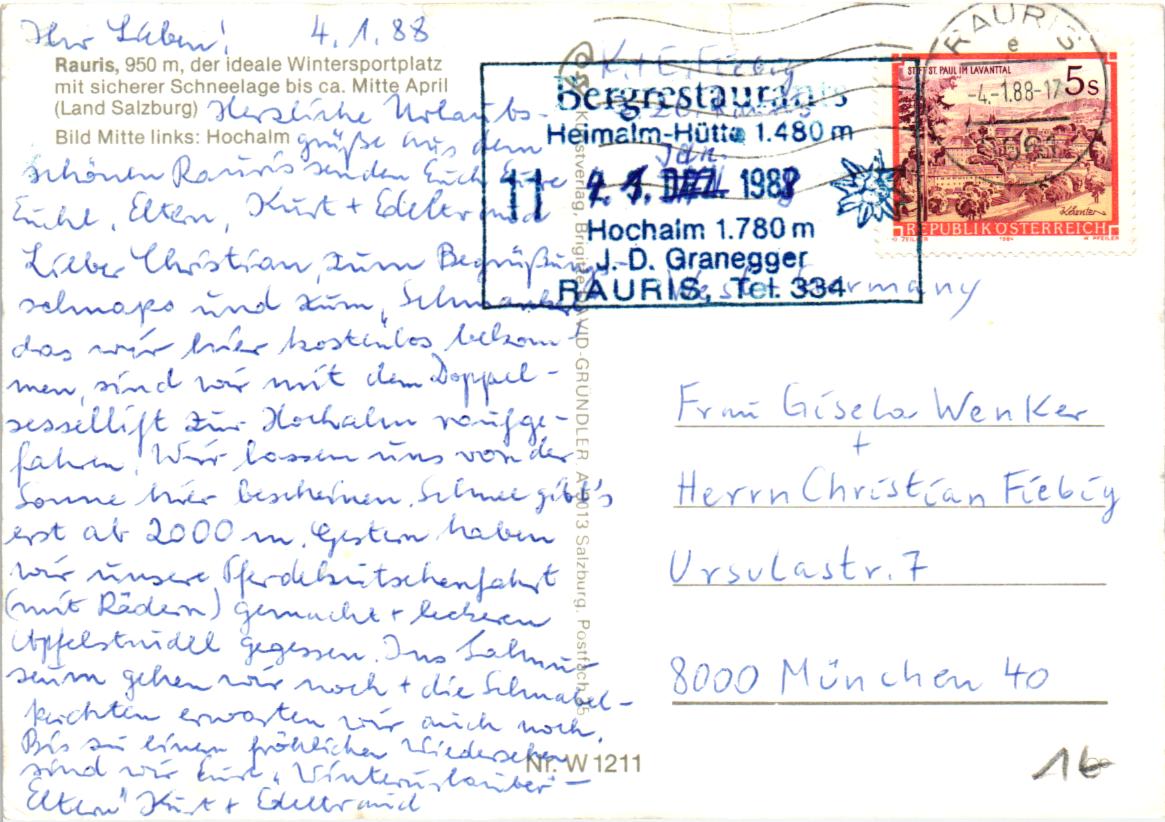 Ihr Lieben! 4.1.88
Rauris, 950 m, der ideale Wintersportplatz
mit sicherer Schneelage bis ca. Mitte April
(Land Salzburg)
Bild Mitte links: Hochalm
Herzliche Urlaubs-
grüße aus dem
schönen Rauris senden Euch Eure
Eltern, Kurt + Edeltraud
Lieber Christian, zum Begrüßungs-
schnaps und zum
das wir hier kostenlos bekom-
men, sind wir mit dem Doppel-
sessellift zur Hochalm raufge-
fahren. Wir lassen uns von der
Sonne hier bescheinen. Schnee gibt's
erst ab 2000 m. Gestern haben
wir unsere Pferdekutschenfahrt
(mit Rädern) gemacht + leckeren
Apfelstrudel gegessen. Ins
seum gehen wir noch + die Schnabel-
perchten erwarten wir auch noch.
Bis zu einem fröhlichen Wiedersehen
sind wir Eure „Winterurlauber-
Eltern" Kurt + Edeltraud
K. + E. Fiebig
Bergrestaurants
Heimalm-Hütte 1.480 m
Jan.
11 4. 1. DEZ. 1988
Hochalm 1.780 m
J.-D. Granegger
RAURIS, Tel. 334
West Germany
Kunstverlag, Brigitte DAVID-GRÜNDLER. A-5013 Salzburg. Postfach 35
Nr. W 1211
RAURIS
e
-4.-1.88-17
5661
STIFT ST. PAUL IM LAVANTTAL
5 s
REPUBLIK ÖSTERREICH
O. ZEILLER 1984 W. PFEILER
Frau Gisela Wenker
+
Herrn Christian Fiebig
Ursulastr. 7
8000 München 40
16